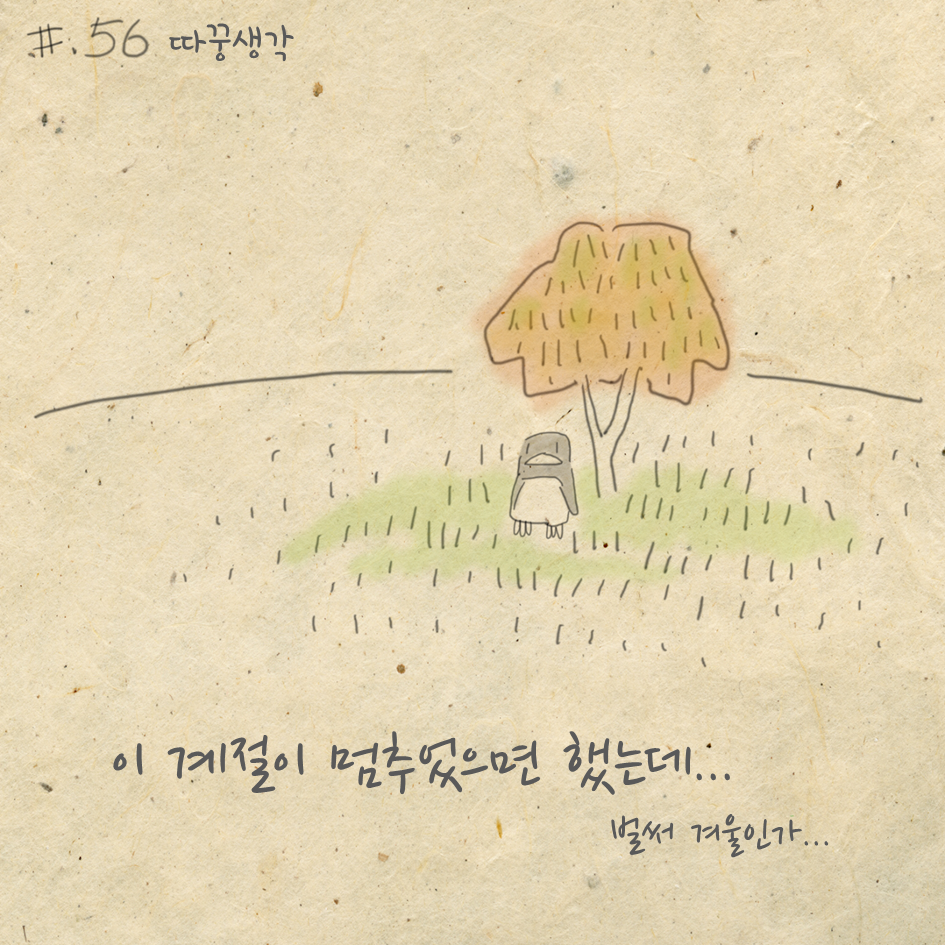 #.56 따꿍생각
이 계절이 멈추었으면 했는데...
벌써 겨울인가...